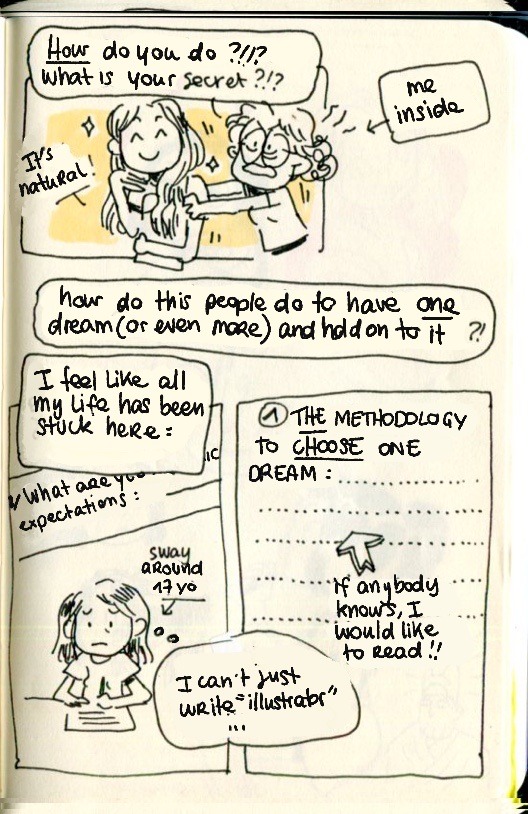 How do you do ?!!?
What is your secret ?!?
me
inside
It's
natural!
how do this people do to have one
dream (or even more) and hold on to it ?!
I feel like all
my life has been
stuck here :
IC
What are you
expectations :
sway
around
17 yo
I can't just
write "illustrator"
...
① THE METHODOLOGY
to CHOOSE ONE
DREAM :
If anybody
knows, I
would like
to read !!